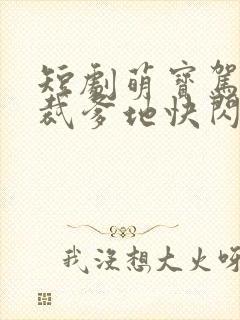 短劇萌寶駕
裁爹地快閃
我沒想大火呀